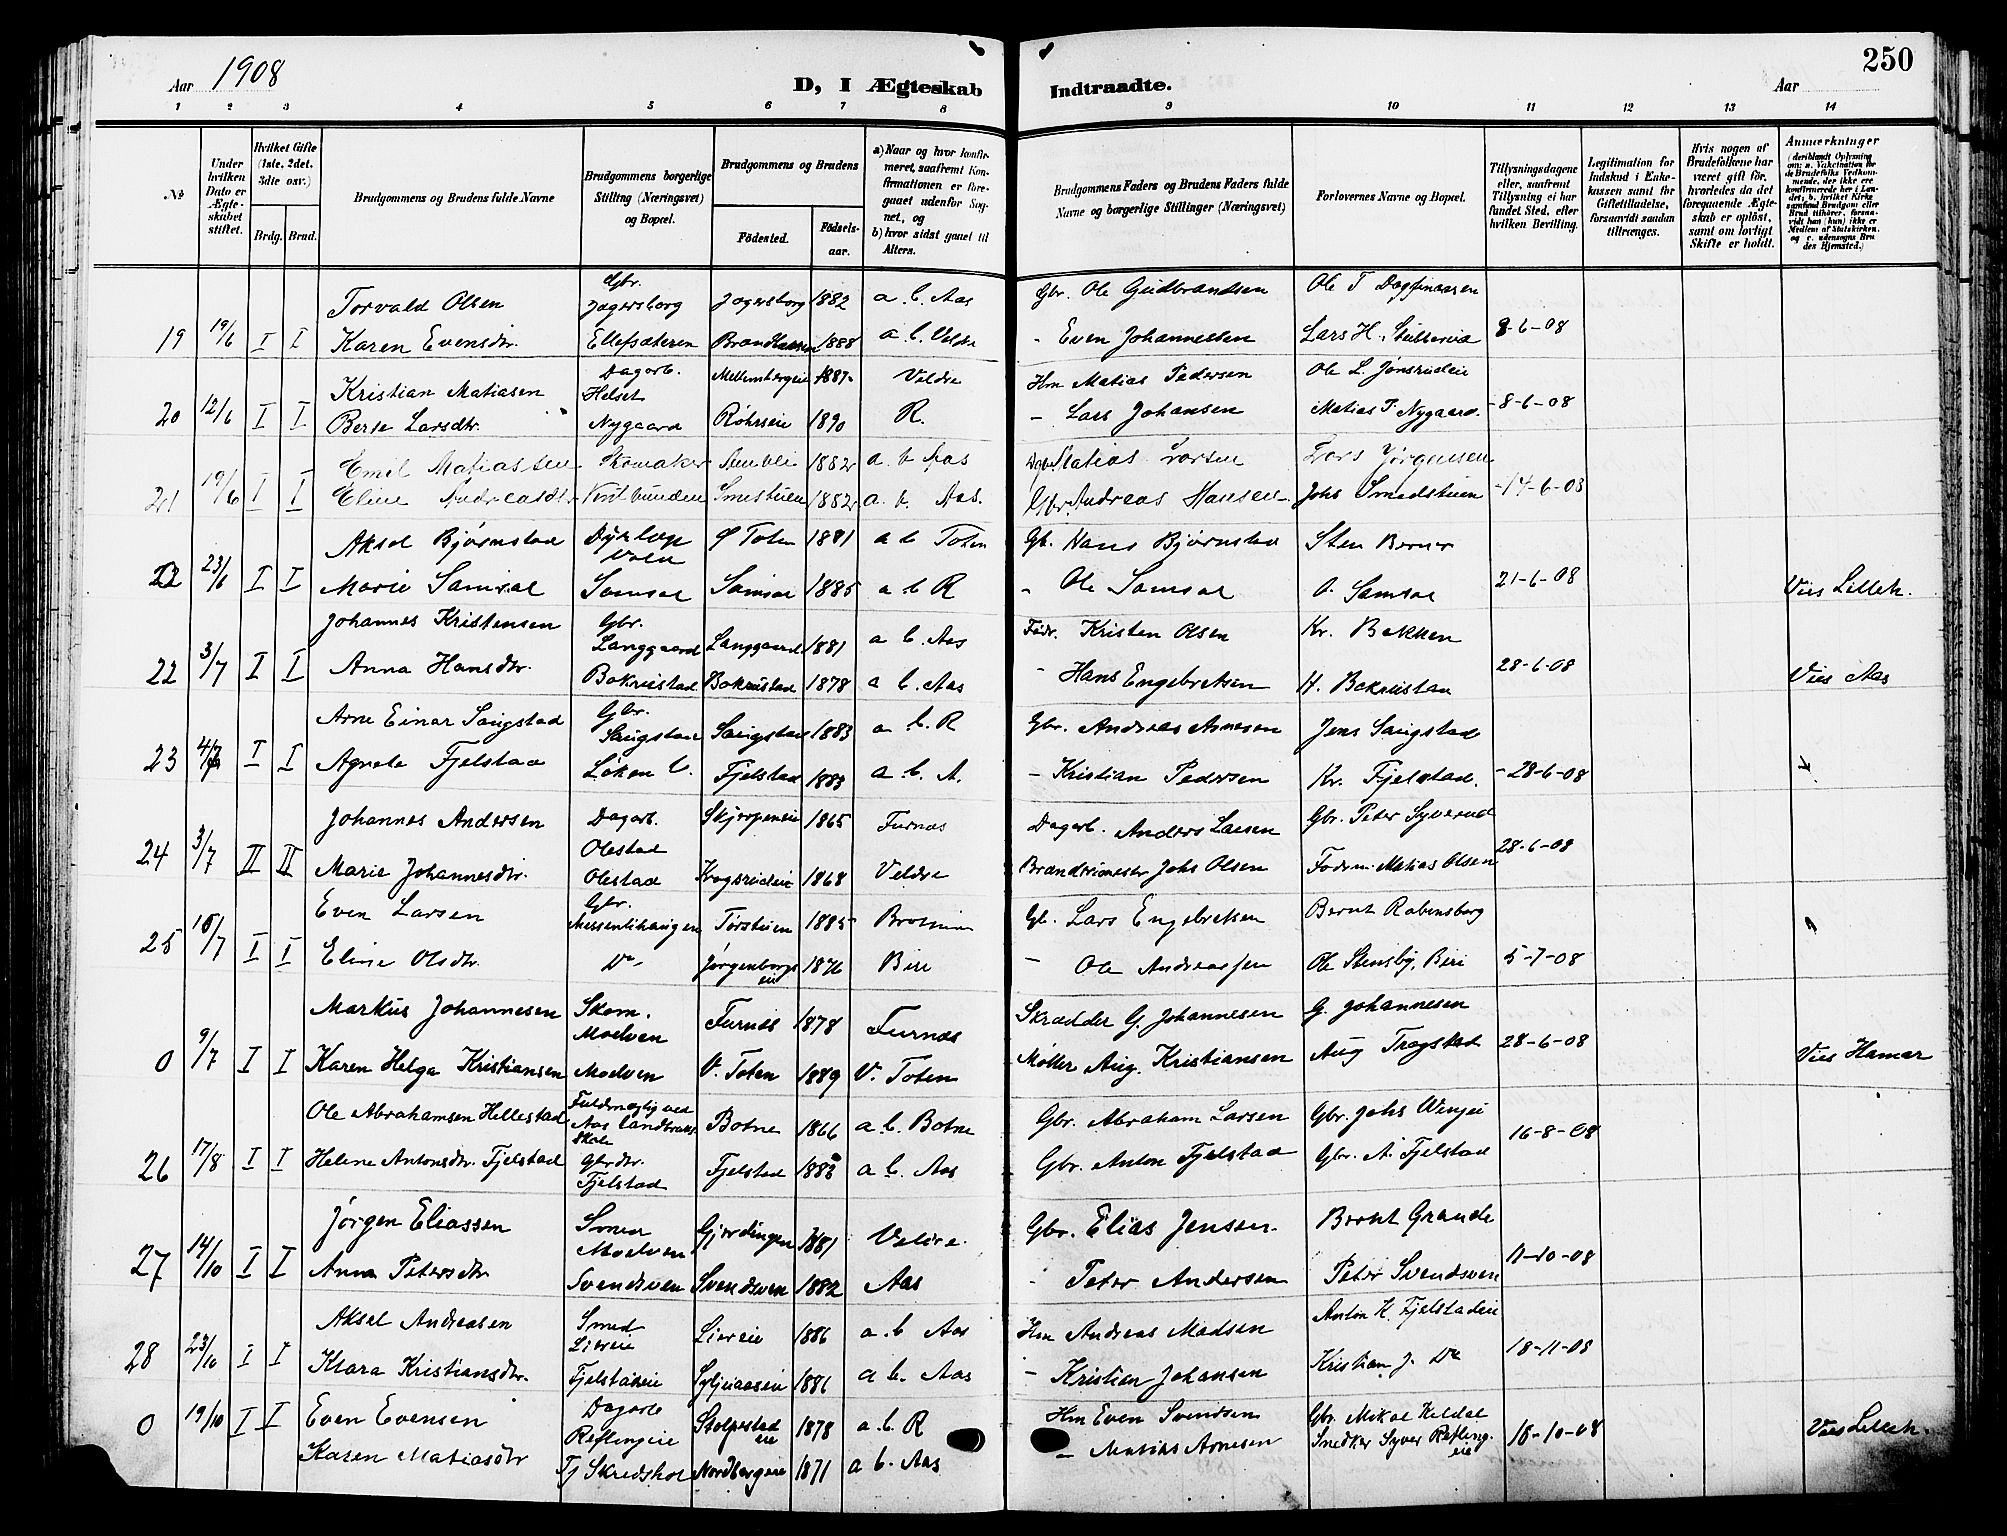 Aar 1908
D, I Ægteskab
Indtraadte.
Aar
250
1 2 3 4 5 6 7 8 9 10 11 12 13 14
No
Under hvilken Dato er Ægteskabet stiftet.
Hvilket Gifte (1ste, 2det, 3die osv.)
Brdg. Brud.
Brudgommens og Brudens fulde Navne
Brudgommens borgerlige Stilling (Næringsvei) og Bopæl.
Brudgommens og Brudens
Fødested.
Fødselsaar.
a) Naar og hvor konfirmeret, saafremt Konfirmationen er foregaaet udenfor Sognet, og
b) hvor sidst gaaet til Alters.
Brudgommens Faders og Brudens Faders fulde Navne og borgerlige Stillinger (Næringsvei)
Forlovernes Navne og Bopæl.
Tillysningsdagene eller, saafremt Tillysning ei har fundet Sted, efter hvilken Bevilling.
Legitimation for Indskud i Enkekassen samt for Giftetilladelse, forsaavidt saadan tiltrænges.
Hvis nogen af Brudefolkene har været gift før, hvorledes da det foregaaende Ægteskab er opløst, samt om lovligt Skifte er holdt.
Anmærkninger
(deriblandt Oplysning om: a. Vakcination for de Brudefolks Vedkommende, der ikke ere konfirmerede her i Landet; b. hvilket Kirkesamfund Brudgom eller Brud tilhører, forsaavidt han (hun) ikke er Medlem af Statskirken, og c. udensogns Brudes Hjemsted.)
Torvald Olsen Gbr. Jagersborg Jagersborg 1882 a. b. Aas Gbr. Ole Gudbrandsen Ole T Dagfinnsen
19 19/6 I I Karen Evensdtr. Ellefsæteren 1888 a. b. Veldre - Even Johannessen Lars H. 8-6-08
Kristian Matiasen Dagarb. Helset 1887 Veldre Hm Matias Pedersen Ole L. Jønsrudeie
20 12/6 I I Berte Larsdtr. Nygaard Røhrseie 1890 R. - Lars Johansen Matias T. Nygaard - 8-6-08
Emil Matiassen Skomaker 1882 a. b Aas Matias Larsen Lars Jørgensen
21 19/6 I I Eline Andreasdtr. Smestuen 1882 a. b. Aas. Gbr. Andreas Hansen Johs Smedstuen - 14-6-08
Aksel Bjørnstad Dyrlæge Ø Toten 1881 a b Toten Gb. Hans Bjørnstad Sten Berner
22 23/6 I I Marie Samsal Samsal Samsal 1885 a b R - Ole Samsal O. Samsal 21-6-08 Vies Lilleh.
Johannes Kristensen Gbr. Langgaard Langgaard 1881 a b. Aas Fødr. Kristen Olsen Kr. Bakken
22 3/7 I I Anna Hansdtr. Bakrustad Bakrustad 1878 a b. Aas - Hans Engebretsen H. Bakrustad 28-6-08 Vies Aas
Arne Einar Saugstad Gbr. Saugstad Saugstad 1883 a b. R Gbr. Andreas Arnesen Jens Saugstad
23 4/7 I I Agnete Fjelstad Løken V. Fjelstad 1883 a. b. A. - Kristian Pedersen Kr. Fjelstad. - 28-6-08
Johannes Andersen Dagarb. Olestad Skjørpeneie 1865 Furnes Dagarb. Anders Larsen Gbr. Peter Syverud
24 3/7 II II Marie Johannesdtr. Olestad Krogsrudeie 1868 Veldre Johs Olsen Fødrm. Matias Olsen 28-6-08
Even Larsen Gbr. Messenlihaugen Tørstuen 1885 Gb. Lars Engebretsen Bernt Rabensborg
25 10/7 I I Eline Olsdtr. Do Jørgenborgs eie 1876 Biri - Ole Andreassen Ole Stensby, Biri 5-7-08
Markus Johannesen Skom. Moelven Furnes 1878 Furnes Skrædder G. Johannesen G. Johannesen
0 9/7 I I Karen Helga Kristiansen Moelven V. Toten 1889 V. Toten Møller Aug. Kristiansen Aug Trogstad 28-6-08 Vies Hamar
Ole Abrahamsen Hellestad Fuldmægtig ved Aas Landbruksskole Botne 1866 a. b. Botne Gbr. Abraham Larsen Gbr. Johs Wenjei
26 17/8 I I Helene Antonsdtr. Fjelstad Gbrdtr. Fjelstad Fjelstad 1888 a b. Aas Gbr. Anton Fjelstad Gbr. A. Fjelstad 16-8-08
Jørgen Eliassen Smed Moelven Gjørdingen 1881 Veldre. Gbr. Elias Jensen. Bernt Grande
27 14/10 I I Anna Petersdtr Svendsven Svendsven 1882 Aas - Peter Andersen Peter Svendsven 11-10-08
Aksel Andreasen Smed Liereie Liereie 1886 a. b Aas Hm Andreas Madsen Anton H. Fjelstadeie
28 23/10 I I Klara Kristiansdtr. Fjelstadeie Syljuaaseie 1881 a b. Aas - Kristian Johansen Kristian J. Do 18-11-08
0 19/10 I I Even Evensen Dagarb Reflingeie Stolpestad eie 1878 a. b. R Hm Even Svendsen Gbr. Mikal Kildal
Karen Matiasdtr Fj Skredshol Nordbergeie 1871 a b. Aas - Matias Arnesen Snedker Syver Reflingeie 18-10-08 Vies Lilleh.